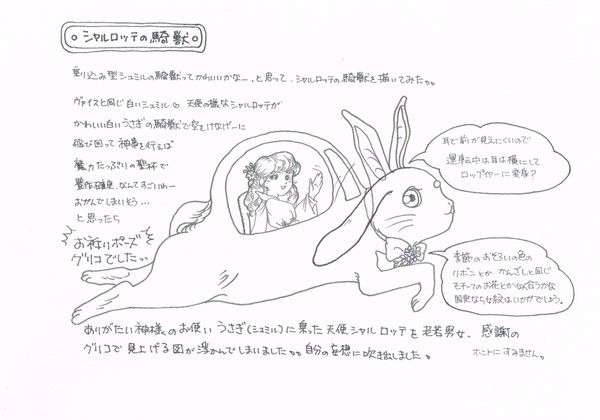 シャルロッテの騎獣
乗り込み型シュミルの騎獣ってかわいいかなー、と思って、シャルロッテの騎獣を描いてみた。。
ヴァイスと同じ白いシュミル♡ 天使の様なシャルロッテが
かわいい白いうさぎの騎獣で空をけなげーに
飛び回って神事を行えば
魔力たっぷりの聖杯で
豊作確実、なんてすごいわー
おがんでしまいそう…
と思ったら
お祈りポーズ
グリコでした。。
耳で前が見えにくいので
運転中は耳は横にして
ロップイヤーに変身?
季節のおそろいの色の
リボンとか かんざしと同じ
モチーフのお花とか似合うかな
国境なら女紋はいかがでしょう。
ありがたい神様のお使い うさぎ(シュミル)に乗った天使シャルロッテを老若男女、感謝の
グリコで見上げる図が浮かんでしまいました。。自分の妄想に吹き出しました。
ホントにすみません。